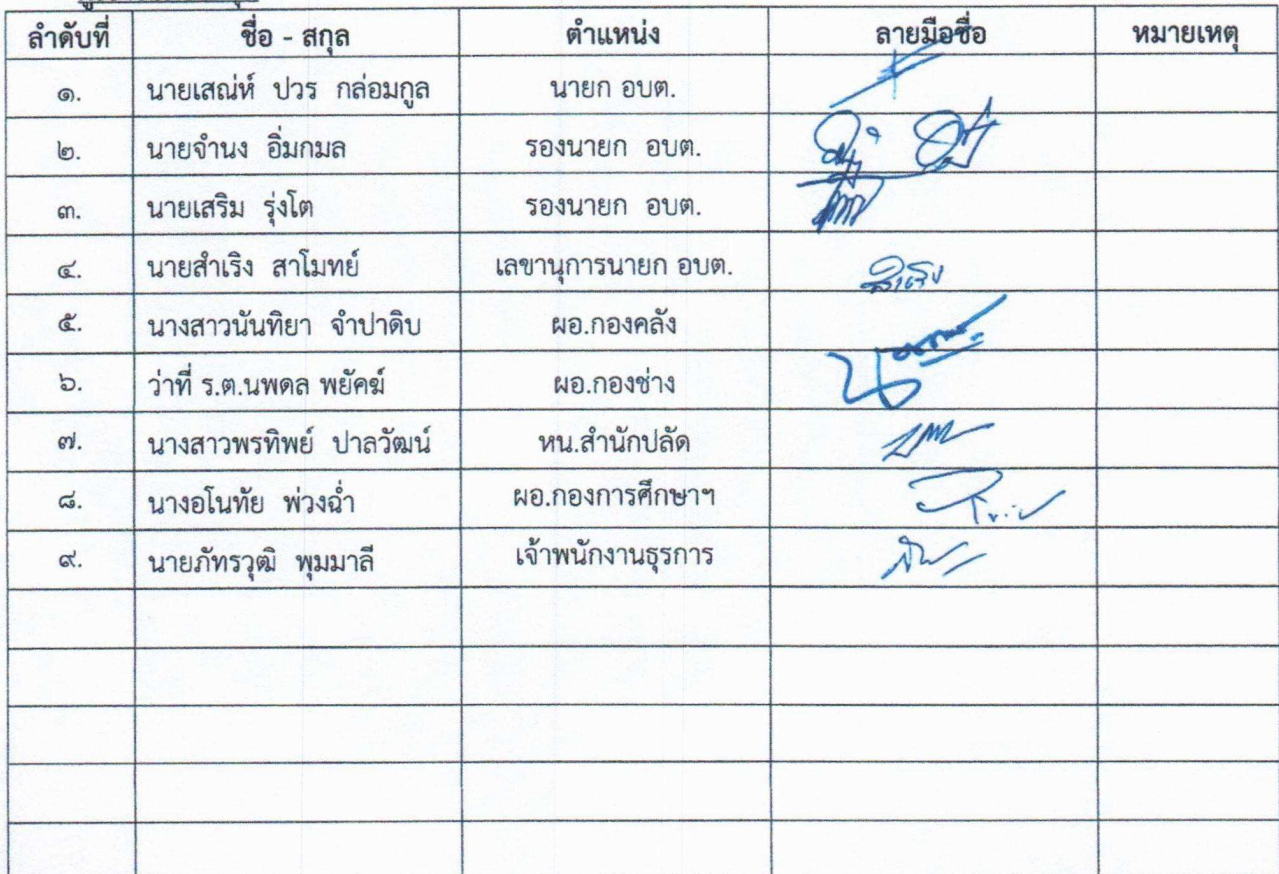 ลำดับที่ ชื่อ - สกุล ตำแหน่ง ลายมือชื่อ หมายเหตุ
๑. นายเสณ่ห์ ปวร กล่อมกูล นายก อบต.
๒. นายจำนง อิ่มกมล รองนายก อบต.
๓. นายเสริม รุ่งโต รองนายก อบต.
๔. นายสำเริง สาโมทย์ เลขานุการนายก อบต. สำเริง
๕. นางสาวนันทิยา จำปาดิบ ผอ.กองคลัง
๖. ว่าที่ ร.ต.นพดล พยัคฆ์ ผอ.กองช่าง
๗. นางสาวพรทิพย์ ปาลวัฒน์ หน.สำนักปลัด
๘. นางอโนทัย พ่วงฉ่ำ ผอ.กองการศึกษาฯ
๙. นายภัทรวุฒิ พุมมาลี เจ้าพนักงานธุรการ